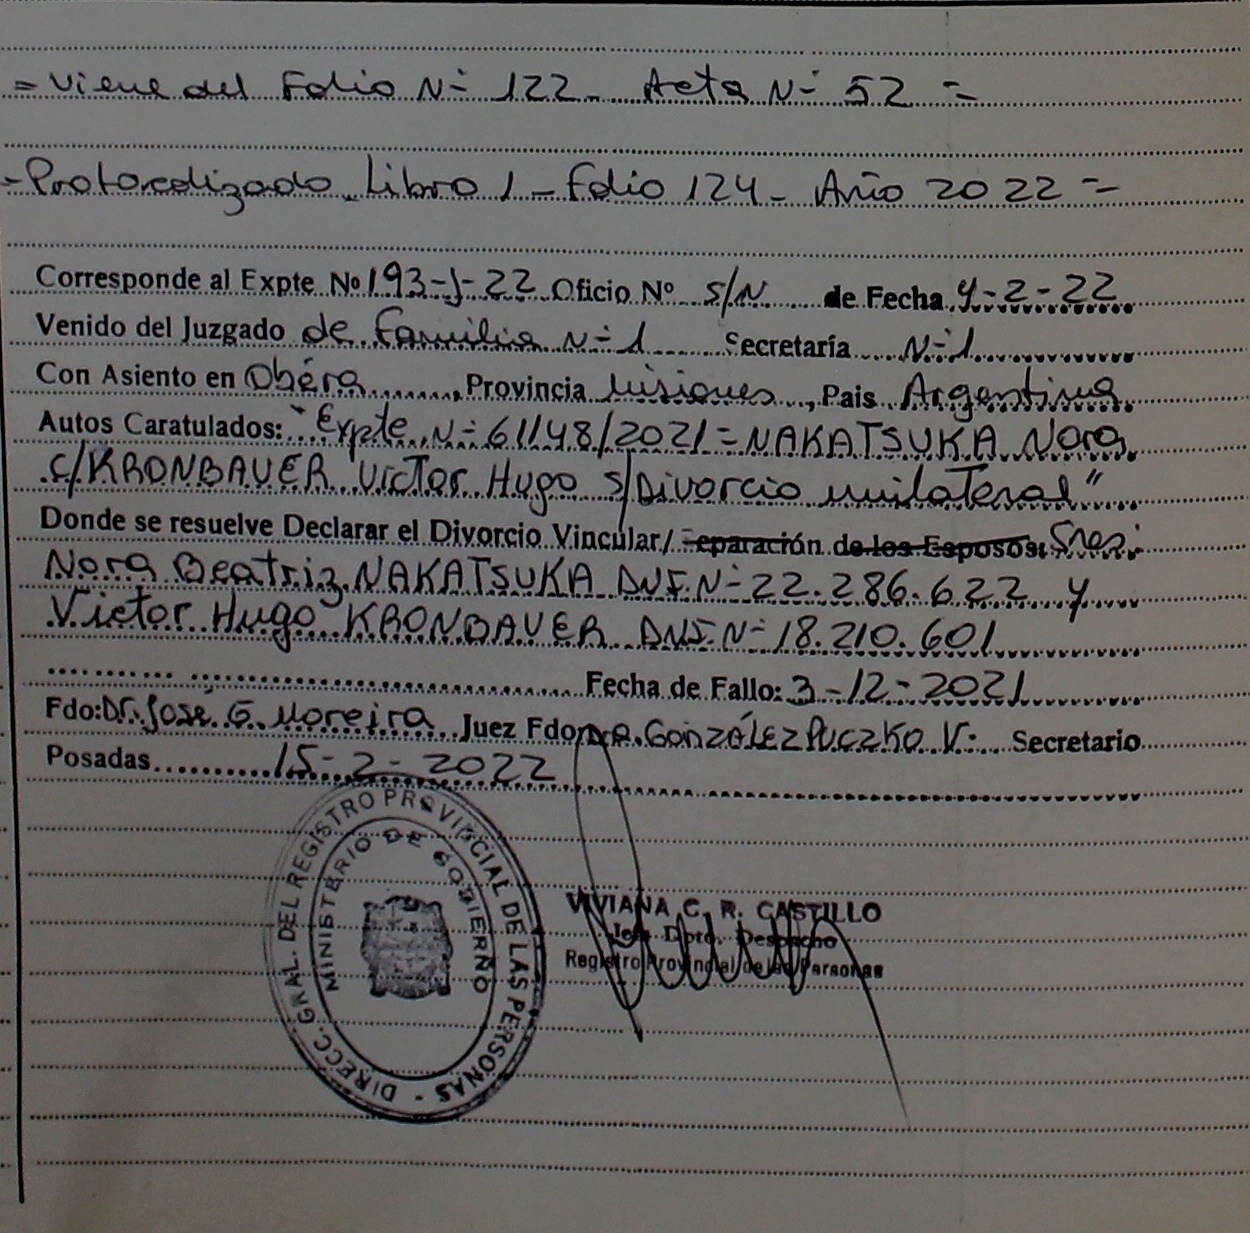 = Viene del Folio Nº 122_ Acta Nº 52 =
- Protocolizado Libro 1 - Folio 124 - Año 2022 =
Corresponde al Expte Nº 193-J-22 Oficio Nº S/N de Fecha 4-2-22
Venido del Juzgado de Familia Nº 1 Secretaría Nº 1
Con Asiento en Oberá, Provincia Misiones, Pais Argentina
Autos Caratulados: "Expte Nº 61148/2021 = NAKATSUKA Nora
c/KRONBAUER Victor Hugo s/Divorcio unilateral"
Donde se resuelve Declarar el Divorcio Vincular/ Separación de los Esposos: Sres:
Nora Beatriz NAKATSUKA DNI. Nº 22.286.622 y
Victor Hugo KRONBAUER DNI. Nº 18.210.601
Fecha de Fallo: 3-12-2021
Fdo: Dr. José G. Moreira Juez Fdo Dra. González Puczko V. Secretario
Posadas 15-2-2022
DIRECC. GRAL. DEL REGISTRO PROVINCIAL DE LAS PERSONAS -
MINISTERIO DE GOBIERNO
VIVIANA C. R. CASTILLO
Jefa Dpto. Despacho
Registro Provincial de las Personas